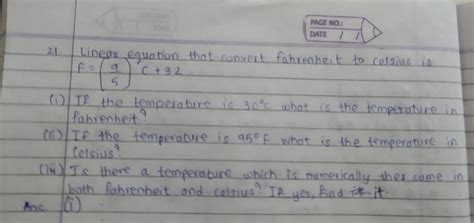 PAGE NO.:
DATE / /
21. Linear equation that convert fahrenheit to celsius is
F = (9/5) C + 32
(i) If the temperature is 30°C what is the temperature in
fahrenheit?
(ii) If the temperature is 95°F what is the temperature in
Celsius?
(iii) Is there a temperature which is numerically the same in
both fahrenheit and celsius? If yes, find it
Ans. (i)